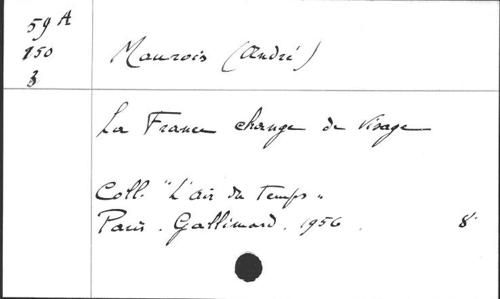 59 A
150
3
Maurois (André)
La France change de Visage
Coll. "L'air du temps"
Paris. Gallimard. 1956. 8°